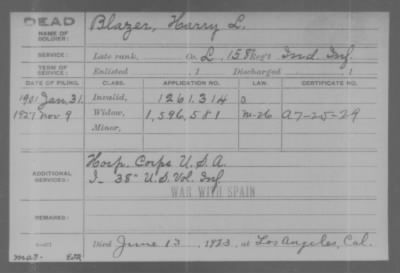 DEAD Blazer, Harry L.
NAME OF SOLDIER:
SERVICE: Late rank, Co. L, 158 Reg't Ind. Inf.
TERM OF SERVICE: Enlisted , 1 Discharged , 1
DATE OF FILING. CLASS. APPLICATION NO. LAW. CERTIFICATE NO.
1901 Jan. 31. Invalid, 1261314 O
1927 Nov 9 Widow, 1,596,581 M-26 A7-25-29
Minor,
ADDITIONAL SERVICES: Hosp. Corps U.S.A.
I- 38" U.S. Vol. Inf
WAR WITH SPAIN
REMARKED:
Died June 13, 1923, at Los Angeles, Cal.